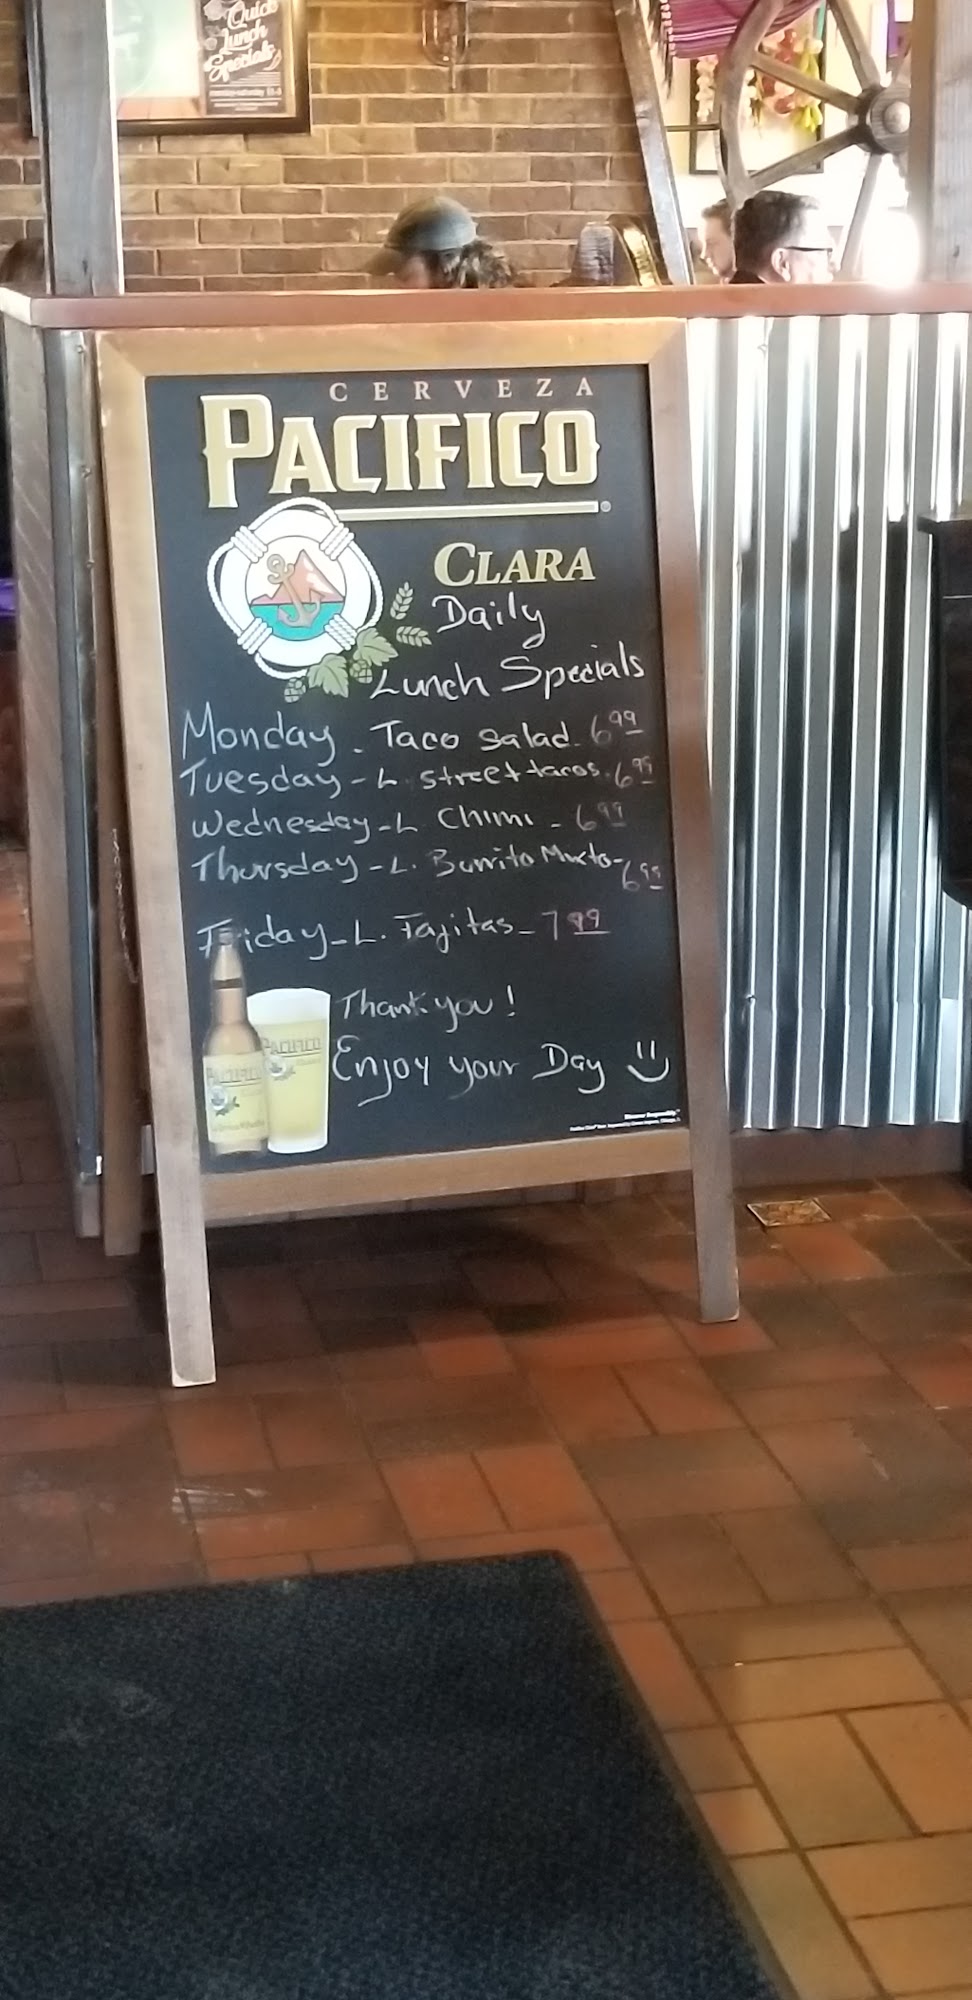 Quick
Lunch
Specials
CERVEZA
PACIFICO
CLARA
Daily
Lunch Specials
Monday . Taco Salad. 6 99
Tuesday - L. street tacos. 6 99
Wednesday - L. Chimi - 6 99
Thursday - L. Burrito Mixto - 6 99
Friday - L. Fajitas - 7 99
Thank you!
PACIFICO
PACIFICO
Enjoy your Day